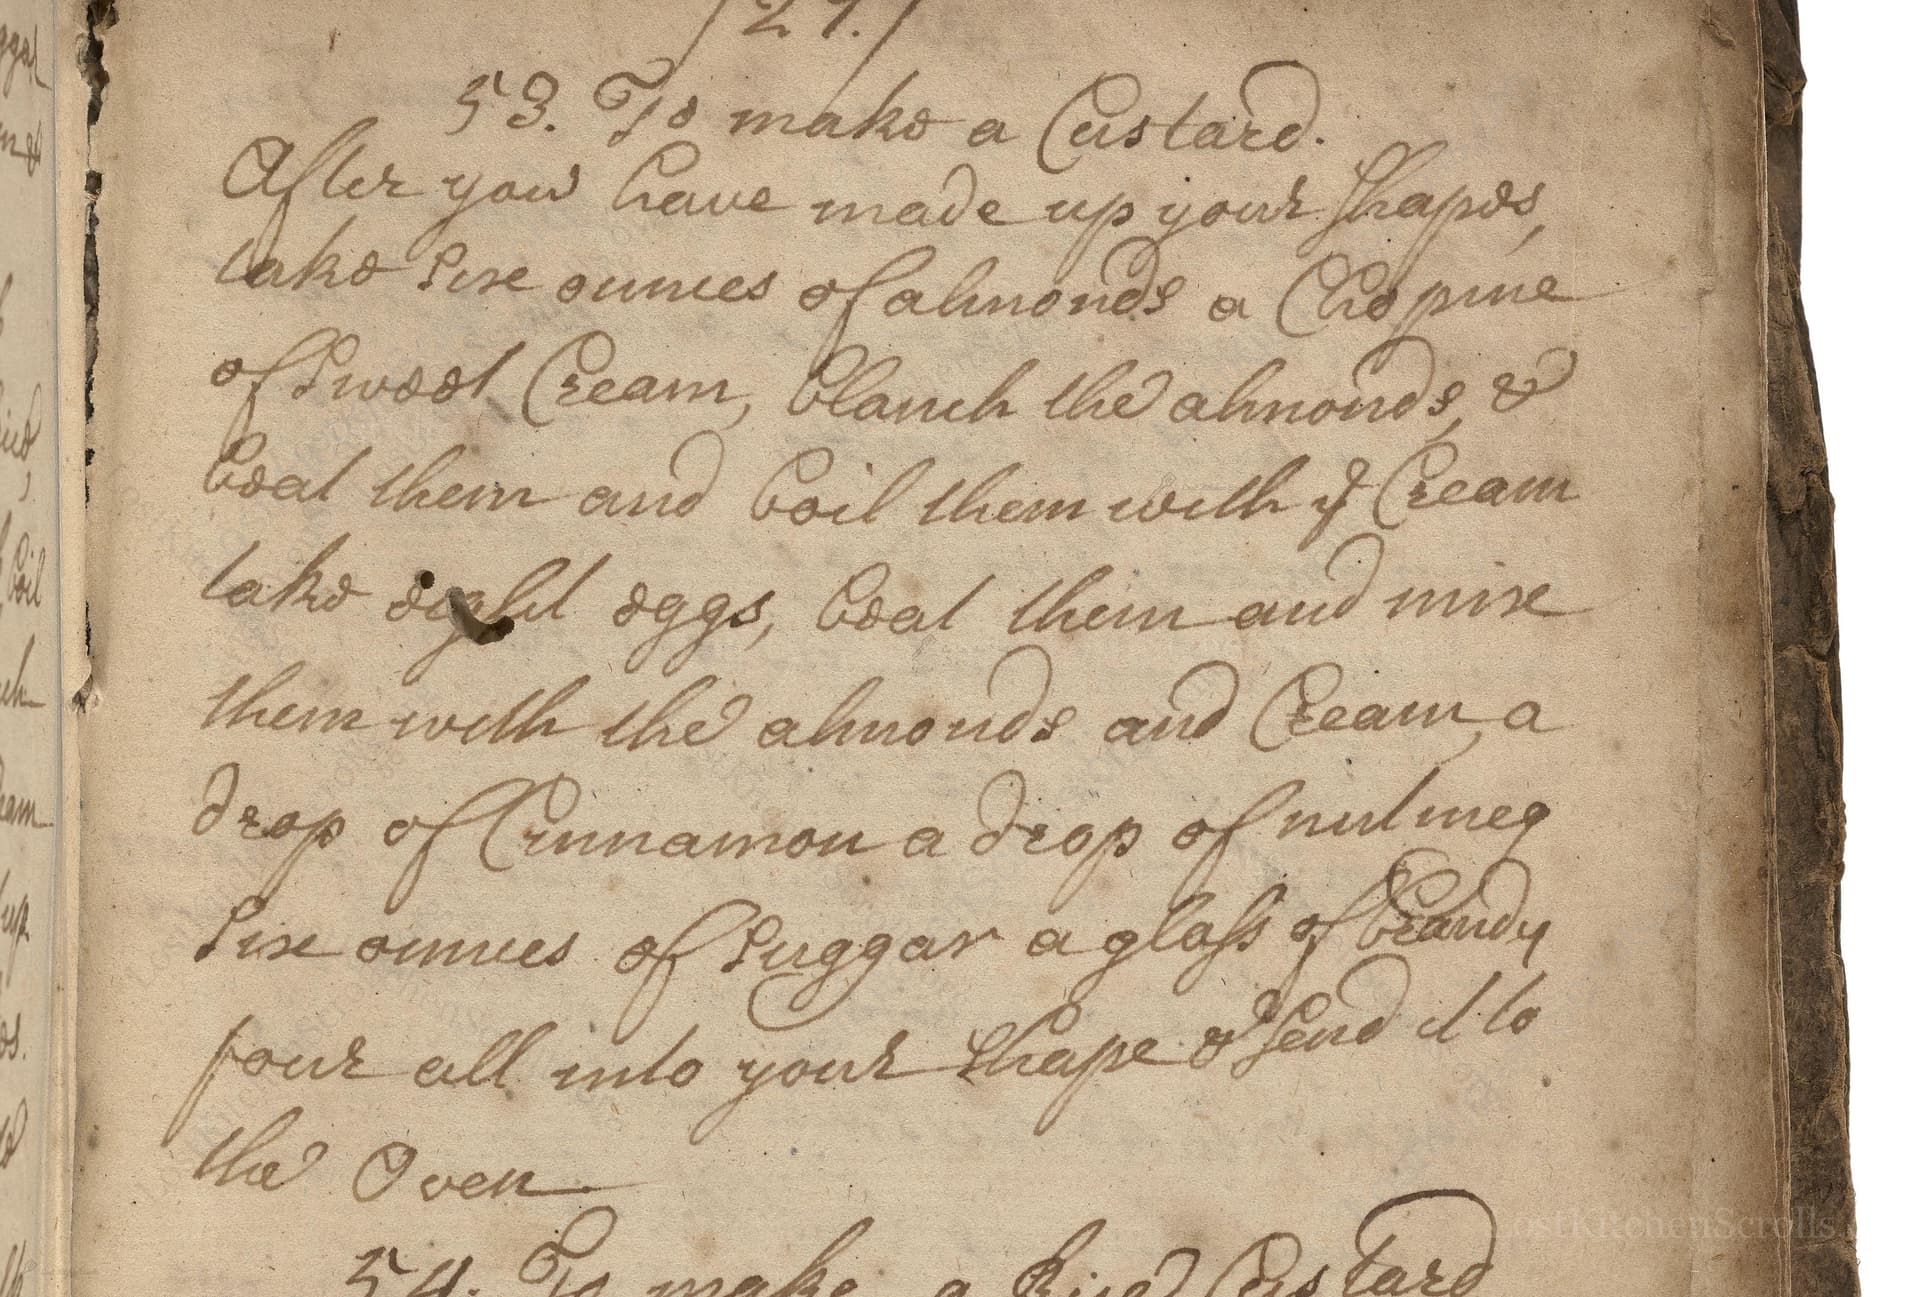 /27./
53. To make a Custard.
After you have made up your Shapes,
take Sixe ounces of almonds a Chopine
of Sweet Cream, blanch the almonds, &
beat them and boil them with ye Cream
take eight eggs, beat them and mixe
them with the almonds and Cream, a
drop of Cinnamon a drop of nutmeg
Sixe ounces of Suggar a glass of brandy
pour all into your Shape & Send it to
the Oven.
54. To make a Rice Custard
LostKitchenScrolls